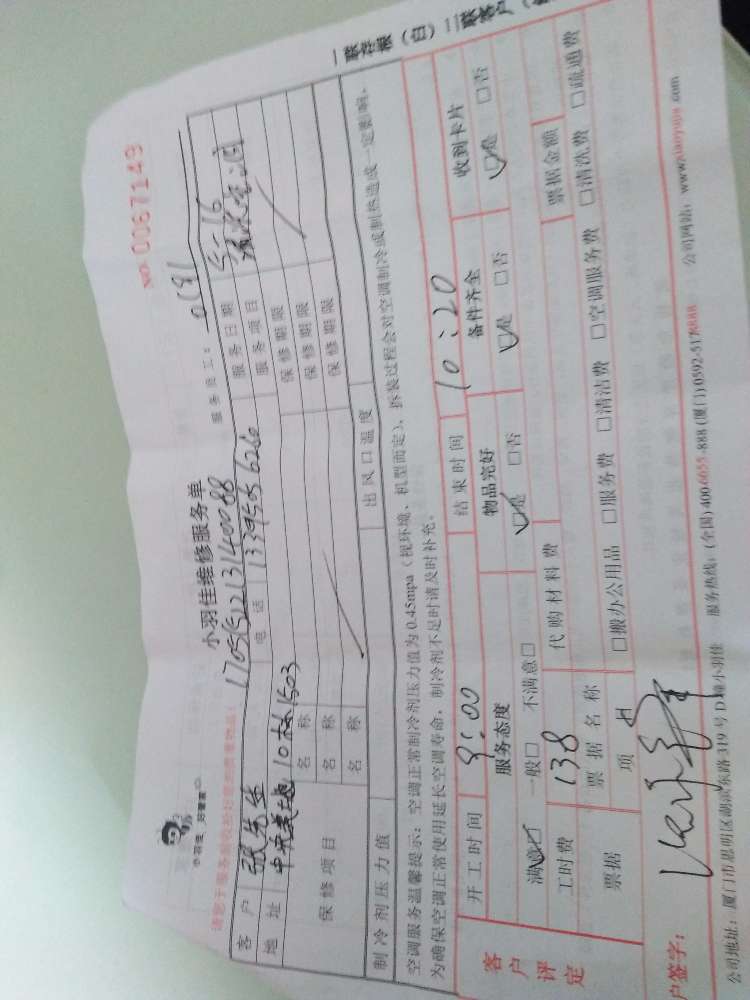 一联存根（白）二联客户（
NO. 0067149
小羽佳 好管家
小羽佳维修服务单
服务员工： 0181
客户 张先生 170512213140088 服务日期 5-16
电话 13395056260 服务项目
地址 10栋1503
保修项目 名称 保修期限
名称 保修期限
名称 保修期限
制冷剂压力值 出风口温度
空调服务温馨提示：空调正常制冷剂压力值为 0.45mpa（视环境、机型而定），拆装过程会对空调制冷或制热造成一定影响，
为确保空调正常使用延长空调寿命，制冷剂不足时请及时补充。
客户评定
开工时间 9:00 结束时间 10:20
服务态度 物品完好 备件齐全 收到卡片
满意☑ 一般□ 不满意□ ☑是 □否 ☑是 □否 ☑是 □否
工时费 138 代购材料费 票据金额
票据 票据名称
项目 □搬办公用品 □服务费 □清洁费 □空调服务费 □清洗费 □疏通费
户签字：
公司地址：厦门市思明区湖滨东路 319 号 D 幢小羽佳 服务热线：(全国) 400-6655-888 (厦门) 0592-5178888 公司网站：www.xiaoyujia.com